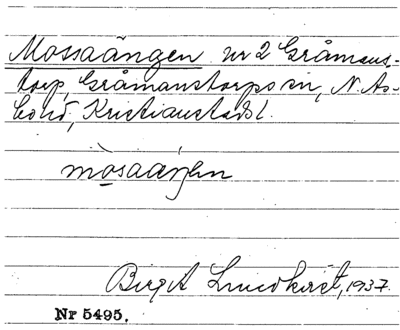 Mossaängen nr 2 Gråmans-
torp, Gråmanstorps sn, N. Ås-
bo hd, Kristianstads l.
mòsaäŋen
Birgit Lundkvist, 1937.
Nr 5495.